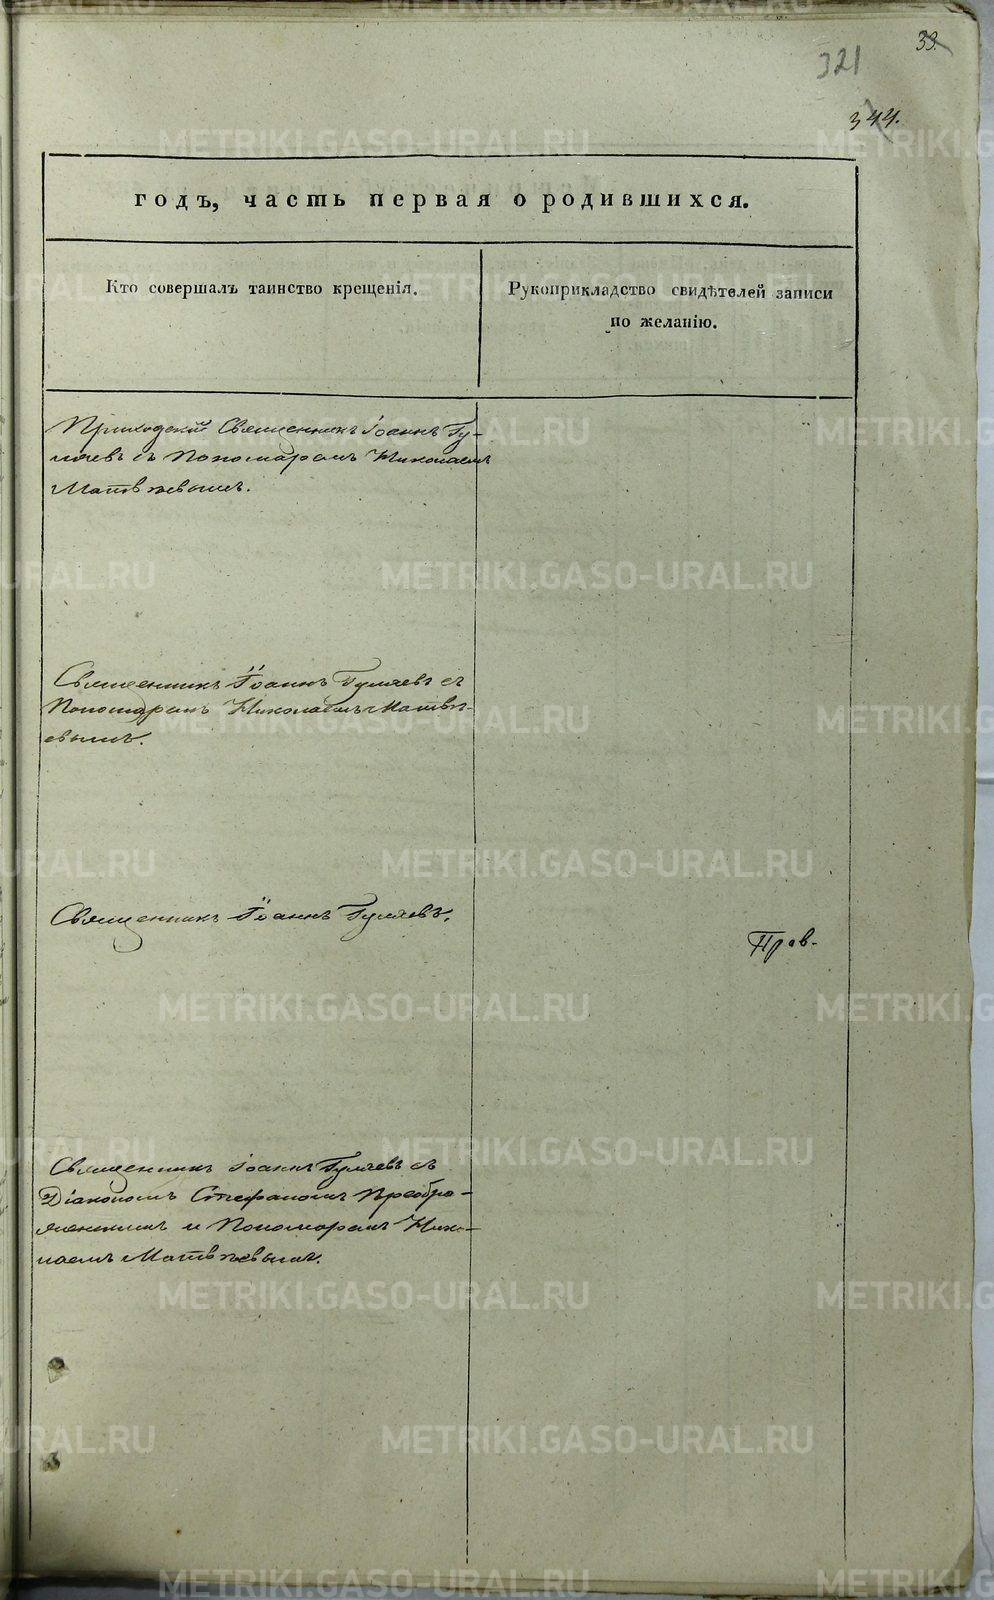 33.
321
344.
годъ, часть первая о родившихся.
Кто совершалъ таинство крещенія.
Рукоприкладство свидѣтелей записи
по желанію.
Приходскій Священникъ Іоаннъ Гу-
ляевъ съ Пономаремъ Николаемъ
Матвѣевымъ.
Священникъ Іоаннъ Гуляевъ съ
Пономаремъ Николаемъ Матвѣ-
евымъ.
Священникъ Іоаннъ Гуляевъ.
Прав.
Священникъ Іоаннъ Гуляевъ съ
Діакономъ Стефаномъ Преобра-
женскимъ и Пономаремъ Нико-
лаемъ Матвѣевымъ.
METRIKI.GASO-URAL.RU